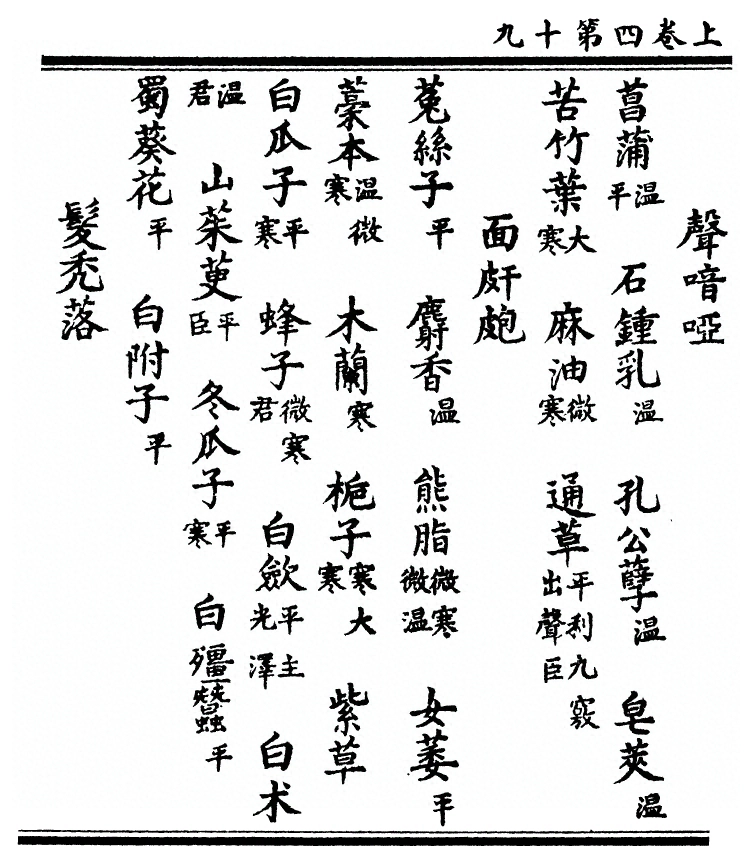 上卷四第十九
聲喑啞
菖蒲溫平 石鍾乳溫 孔公孽溫 皂莢溫
苦竹葉大寒 麻油微寒 通草平利九竅出聲臣
面皯皰
菟絲子平 麝香溫 熊脂微寒微溫 女萎平
藁本溫微寒 木蘭寒 梔子寒大寒 紫草
白瓜子平寒 蜂子微寒君 白歛平主光澤 白术
溫君 山茱萸平臣 冬瓜子平寒 白殭蠶平
蜀葵花平 白附子平
髮禿落